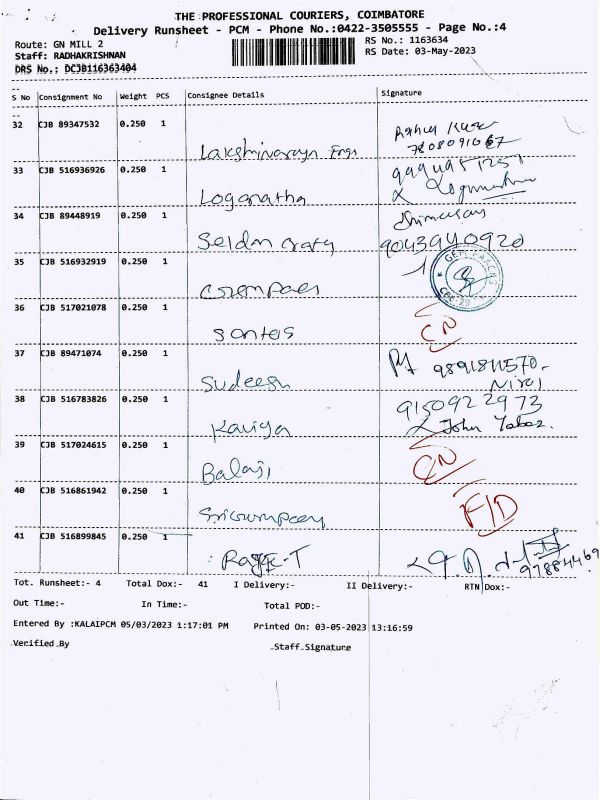 THE PROFESSIONAL COURIERS, COIMBATORE
Delivery Runsheet - PCM - Phone No.:0422-3505555 - Page No.:4
Route: GN MILL 2
RS No.: 1163634
Staff: RADHAKRISHNAN
RS Date: 03-May-2023
DRS No.; DCJB116363404
S No Consignment No Weight PCS Consignee Details Signature
32 CJB 89347532 0.250 1
Lakshminarayn
33 CJB 516936926 0.250 1
Loganatha
34 CJB 89448919 0.250 1
9043940920
35 CJB 516932919 0.250 1
36 CJB 517021078 0.250 1
Santos CN
37 CJB 89471074 0.250 1
Sudeesh
38 CJB 516783826 0.250 1
9150922973
Kaviya John
39 CJB 517024615 0.250 1
Balaji CN
40 CJB 516861942 0.250 1
F/D
41 CJB 516899845 0.250 1
Tot. Runsheet:- 4 Total Dox:- 41 I Delivery:- II Delivery:- RTN Dox:-
Out Time:- In Time:- Total POD:-
Entered By :KALAIPCM 05/03/2023 1:17:01 PM Printed On: 03-05-2023 13:16:59
Verified By Staff Signature